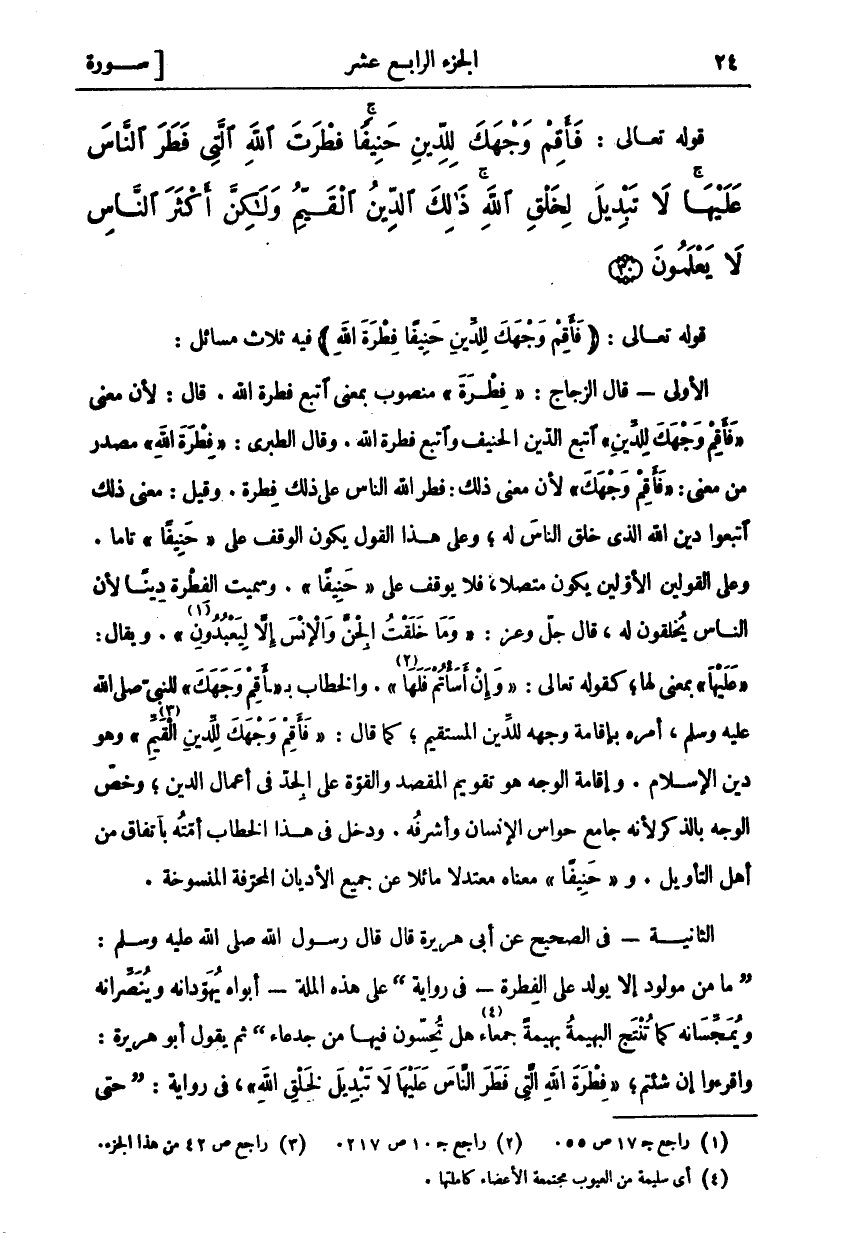 ٢٤ الجزء الرابع عشر [ ســـورة
قوله تعـالى : فَأَقِمْ وَجْهَكَ لِلدِّينِ حَنِيفًا ۚ فِطْرَتَ ٱللَّهِ ٱلَّتِى فَطَرَ ٱلنَّاسَ
عَلَيْهَا ۚ لَا تَبْدِيلَ لِخَلْقِ ٱللَّهِ ۚ ذَٰلِكَ ٱلدِّينُ ٱلْقَيِّمُ وَلَـٰكِنَّ أَكْثَرَ ٱلنَّاسِ
لَا يَعْلَمُونَ ﴿٣٠﴾
قوله تعـالى : ﴿ فَأَقِمْ وَجْهَكَ لِلدِّينِ حَنِيفًا فِطْرَةَ اللهِ ﴾ فيه ثلاث مسائل :
الأولى — قال الزجاج : « فِطْـرَةَ » منصوب بمعنى ٱتبع فطرة الله . قال : لأن معنى
«فَأَقِمْ وَجْهَكَ لِلدِّينِ» ٱتبع الدّين الحنيف وٱتبع فطرة الله . وقال الطبرى : «فِطْرَةَ اللهِ» مصدر
من معنى: «فَأَقِمْ وَجْهَكَ» لأن معنى ذلك: فطر الله الناس على ذلك فِطرة . وقيل : معنى ذلك
ٱتبعوا دين الله الذى خلق الناسَ له ؛ وعلى هـذا القول يكون الوقف على « حَنِيفًا » تاما .
وعلى القولين الأوّلين يكون متصلا، فلا يوقف على « حَنِيفًا » . وسميت الفِطْرة دِينًـا لأن
النـاس يُخلقون له ، قال جلّ وعز : « وَمَا خَلَقْتُ الْجِنَّ وَالْإِنْسَ إِلَّا لِيَعْبُدُونِ (١) » . ويقال:
«عَلَيْهَا» بمعنى لها؛ كقوله تعالى : « وَإِنْ أَسَأْتُمْ فَلَهَا (٢) » . والخطاب بـ«ـأَقِمْ وَجْهَكَ» للنبىّ صلى الله
عليه وسلم ، أمره بإقامة وجهه للدِّين المستقيم ؛ كما قال : « فَأَقِمْ وَجْهَكَ لِلدِّينِ الْقَيِّمِ (٣) » وهو
دين الإســلام . وإقامة الوجه هو تقويم المقصد والقوّة على الجدّ فى أعمال الدين ؛ وخصّ
الوجه بالذكر لأنه جامع حواس الإنسان وأشرفُه . ودخل فى هـذا الخطاب أمّتُه بٱتفاق من
أهل التأويل . و « حَنِيفًا » معناه معتدلا مائلا عن جميع الأديان المحرّفة المنسوخة .
الثانيــة — فى الصحيح عن أبى هريرة قال قال رسـول الله صلى الله عليه وسلم :
” ما من مولود إلا يولد على الفِطرة — فى رواية “ على هذه الملة — أبواه يُهَوِّدانه وينَصِّرانه
ويُمَجِّسَانه كما تُنْتَج البهيمةُ بهيمةً جمعاء (٤) هل تُحِسّون فيهـا من جدعاء “ ثم يقول أبو هريرة :
واقرءوا إن شئتم ؛ «فِطْرَةَ اللهِ الَّتِى فَطَرَ النَّاسَ عَلَيْهَا لَا تَبْدِيلَ لِخَلْقِ اللهِ» ، فى رواية : ” حتى
(١) راجع جـ ١٧ ص ٥٥ . (٢) راجع جـ ١٠ ص ٢١٧ . (٣) راجع ص ٤٢ من هذا الجزء.
(٤) أى سليمة من العيوب مجتمعة الأعضاء كاملتها .